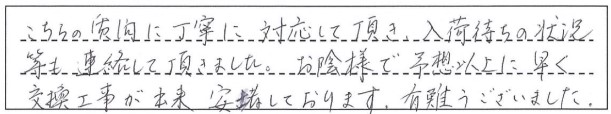 こちらの質問に丁寧に対応して頂き、入荷待ちの状況
等も連絡して頂きました。お陰様で予想以上に早く
交換工事が出来安堵しております。有難うございました。